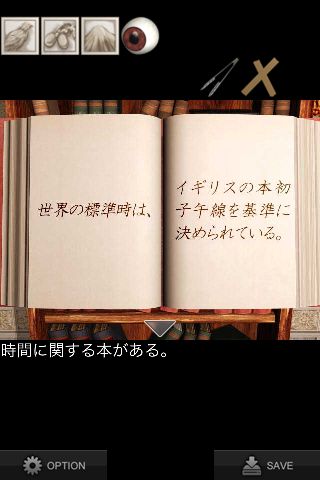 世界の標準時は、
イギリスの本初
子午線を基準に
決められている。
時間に関する本がある。
OPTION
SAVE